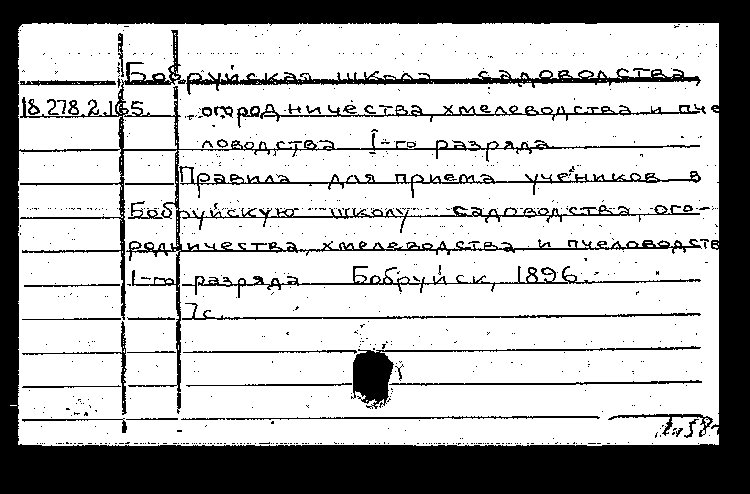 Бобруйская школа садоводства,
18.278.2.165. огородничества, хмелеводства и пче
ловодства I-го разряда
Правила для приема учеников в
Бобруйскую школу садоводства, ого-
родничества, хмелеводства и пчеловодств
1-го разряда Бобруйск, 1896.
7с.